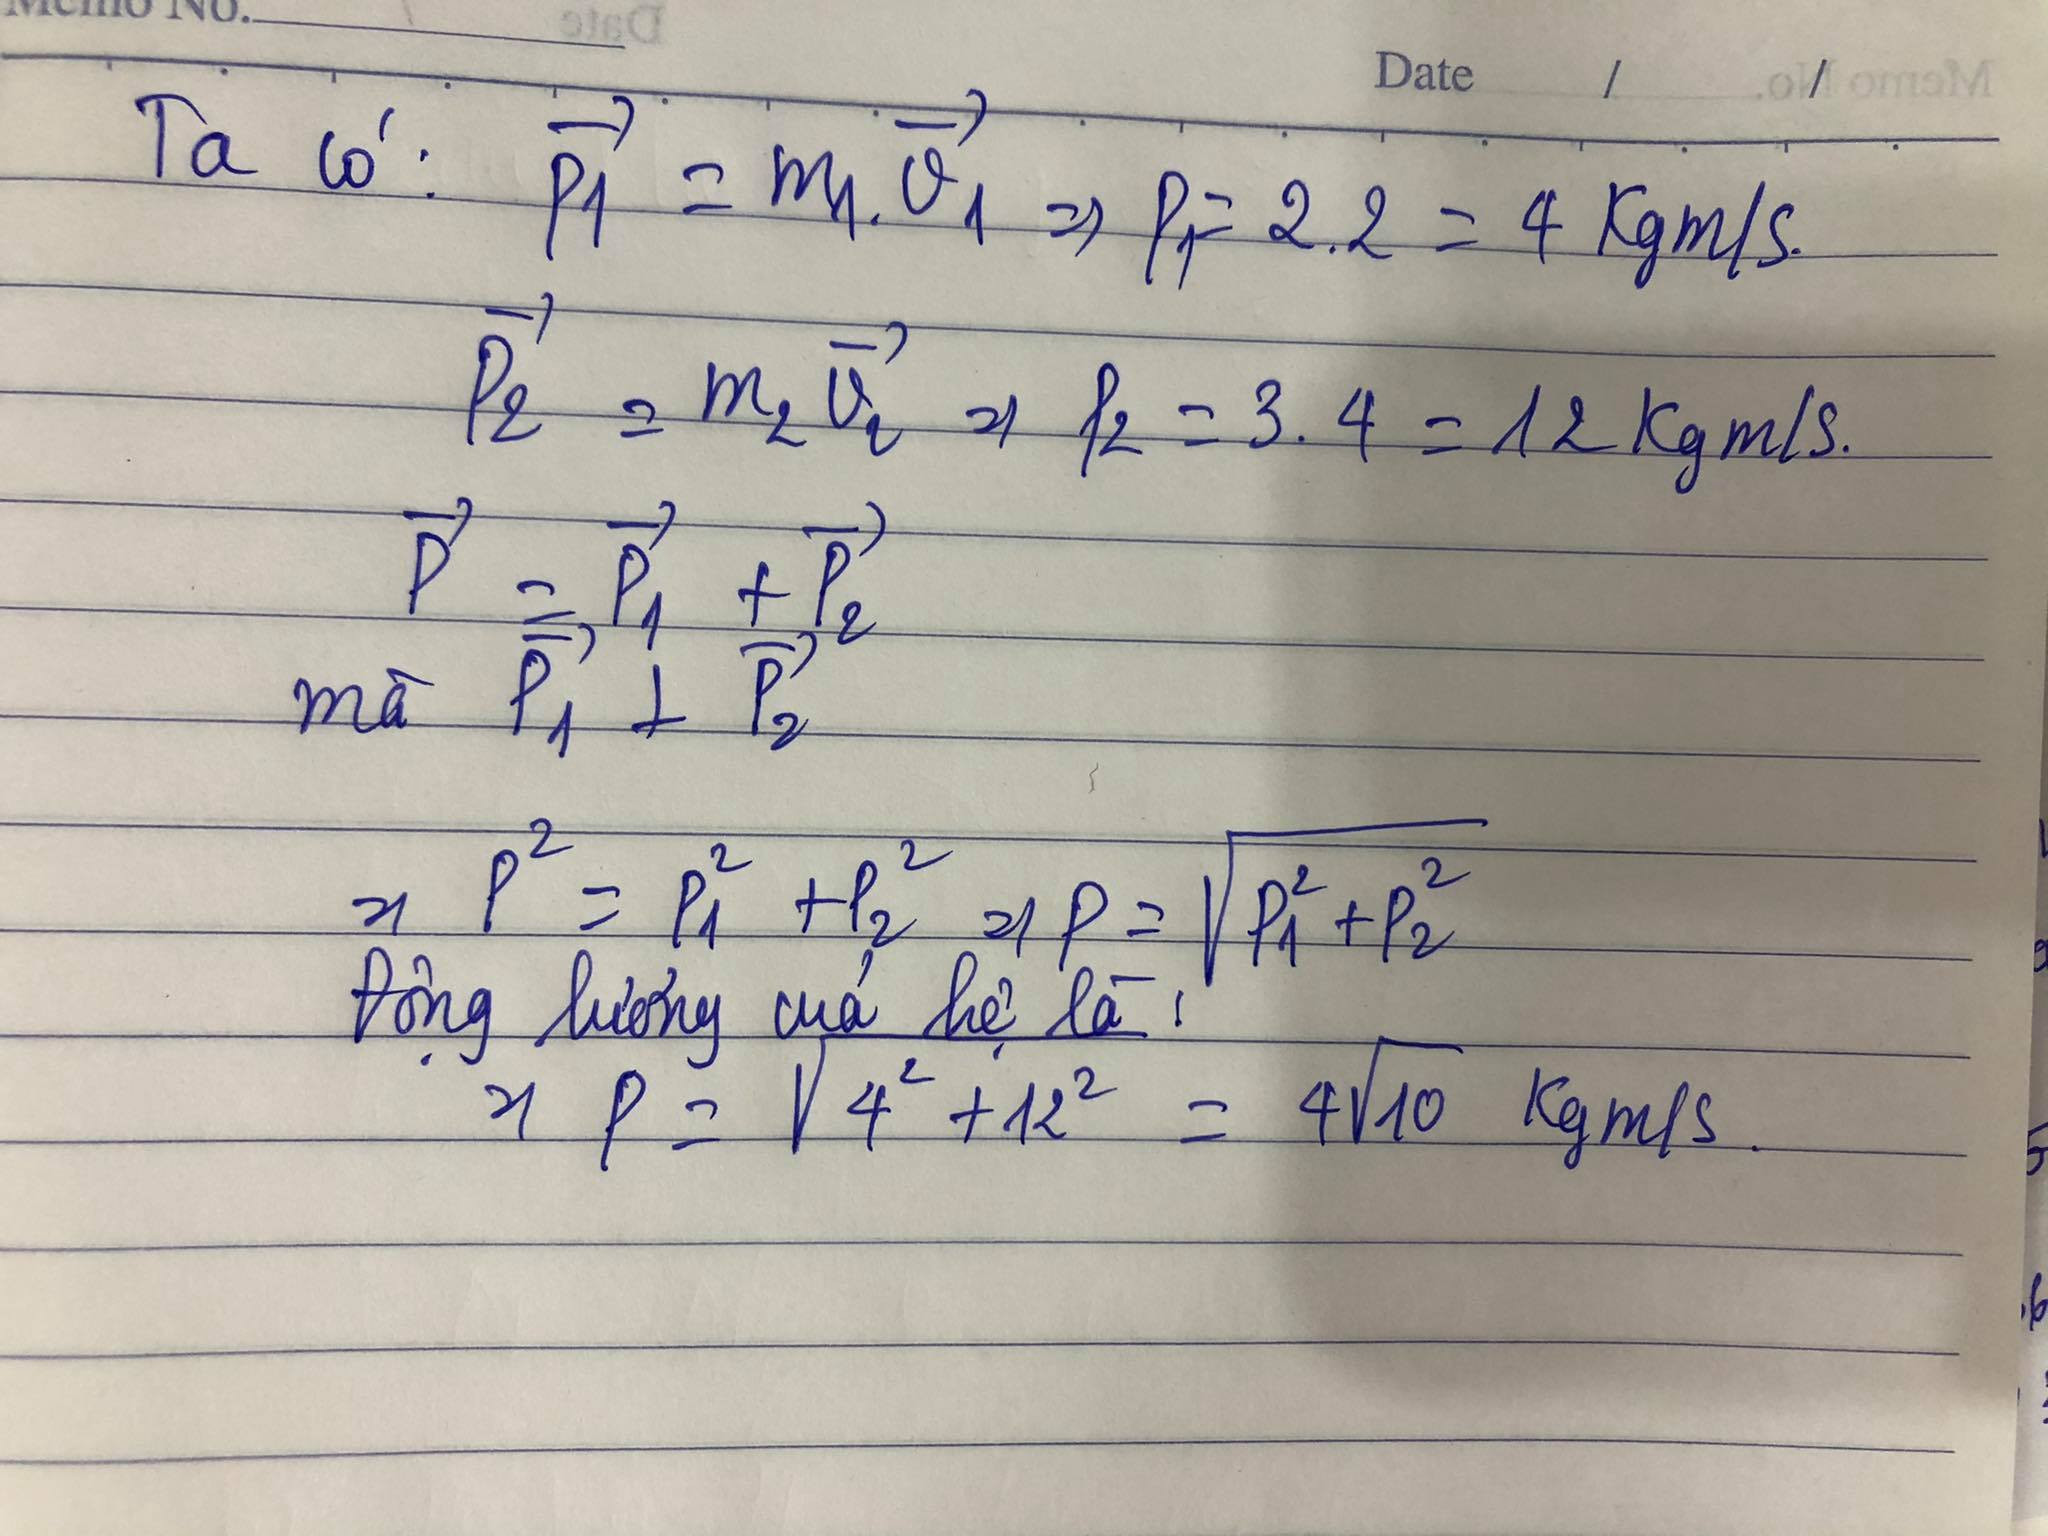 Memo No.
Date / /
Ta có: p₁⃗ = m₁.v⃗₁ => p₁ = 2.2 = 4 Kgm/s.
p₂⃗ = m₂v⃗₂ => p₂ = 3.4 = 12 Kgm/s.
P⃗ = P⃗₁ + P⃗₂
mà P⃗₁ ⊥ P⃗₂
=> P² = P₁² + P₂² => P = √(P₁² + P₂²)
Động lượng của hệ là:
=> P = √(4² + 12²) = 4√10 Kgm/s.